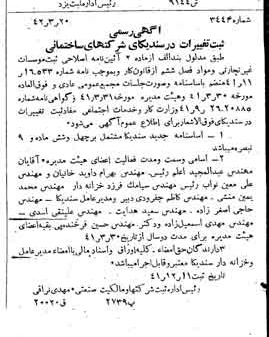 ش ۹۱۴۴ رئیس اداره ثبت یزد
شماره ۳۴۴۴ ۲۰ر۳ر۴۲
آگهی رسمی
ثبت تغییرات در سندیکای شرکتهای ساختمانی
طبق مدلول بند الف از ماده ۲ آئین نامه اصلاحی ثبت موسسات
غیر تجارتی ومواد فصل ششم از قانون کار وبموجب نامه شماره ۱۶٫۵۳۳
۱۱ر۴ر۴۱ منضم باساسنامه وصورتجلسات مجمع عمومی عادی و فوق العاده
مورخه ۳۰ر۳ر۴۱ وهیئت مدیره مورخه ۳۱ر۳ر۴۱ و گواهی نامه شماره
۲۶٫۲۰۸۸۵ ۹ر۱۰ر۴۱ وزارت کار وخدمات اجتماعی مفاد ثبت تغییرات
در سندیکای فوق الاشعار برای اطلاع عموم آگهی میشود
۱ - اساسنامه جدید سندیکا مشتمل بر چهل وشش ماده و ۹
تبصره میباشد
۲ - اسامی وسمت ومدت فعالیت اعضای هیئت مدیره آقایان
مهندس عبدالمجید اعلم رئیس، مهندس بهرام داوید خانیان و مهندس
علی معین نواب رئیس مهندس سیامك فرزد خزانه دار مهندس محمد
یمین منشی، مهندس کاظم جفرودی دبیر ومدیر عامل سندیکا - مهندس
حاجی اصغر زاده، مهندس سعید هدایت، مهندس علینقی اسدی -
مهندس مهدی اسمعیل زاده ودکتر، مهندس حسین فرخندمهی بقیه اعضای
هیئت مدیره برای مدت دوسال از تاریخ ۳۰ر۳ر۴۱
۳ دارندگان حق امضاء، کلیه اوراق واسناد مالی با امضاء مدیر عامل
وخزانه دار سندیکا معتبر وقابل اجرا میباشد
تاریخ ثبت ۱۱ر۱۲ر۴۱
رئیس اداره ثبت شرکتها ومالکیت صنعتی مهدی نراقی
پ ۲۷۳۹ ق ۲۰۰۲۰